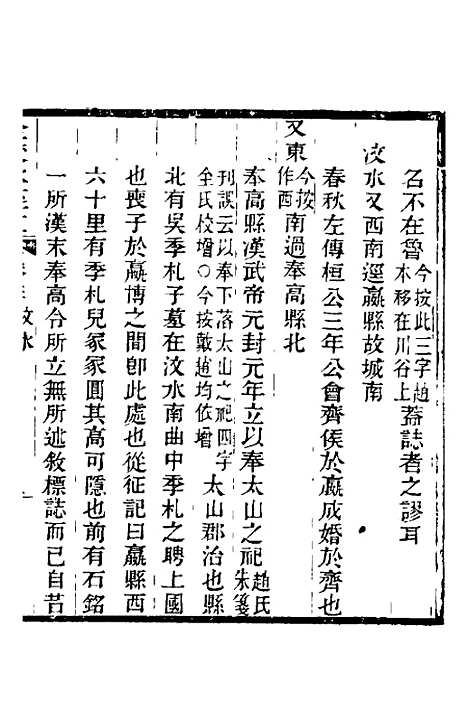 名不在魯今按此三字趙本移在川谷上蓋誌者之謬耳
汶水又西南逕嬴縣故城南
春秋左傳桓公三年公會齊侯於嬴成婚於齊也
又東今按作西南過奉高縣北
奉高縣漢武帝元封元年立以奉太山之祀趙氏朱箋
刊誤云以奉下落太山之祀四字全氏校增○今按戴趙均依增太山郡治也縣
北有吳季札子墓在汶水南曲中季札之聘上國
也喪子於嬴博之間卽此處也從征記曰嬴縣西
六十里有季札兒冢冢圓其高可隱也前有石銘
一所漢末奉高令所立無所述敘標誌而已自昔